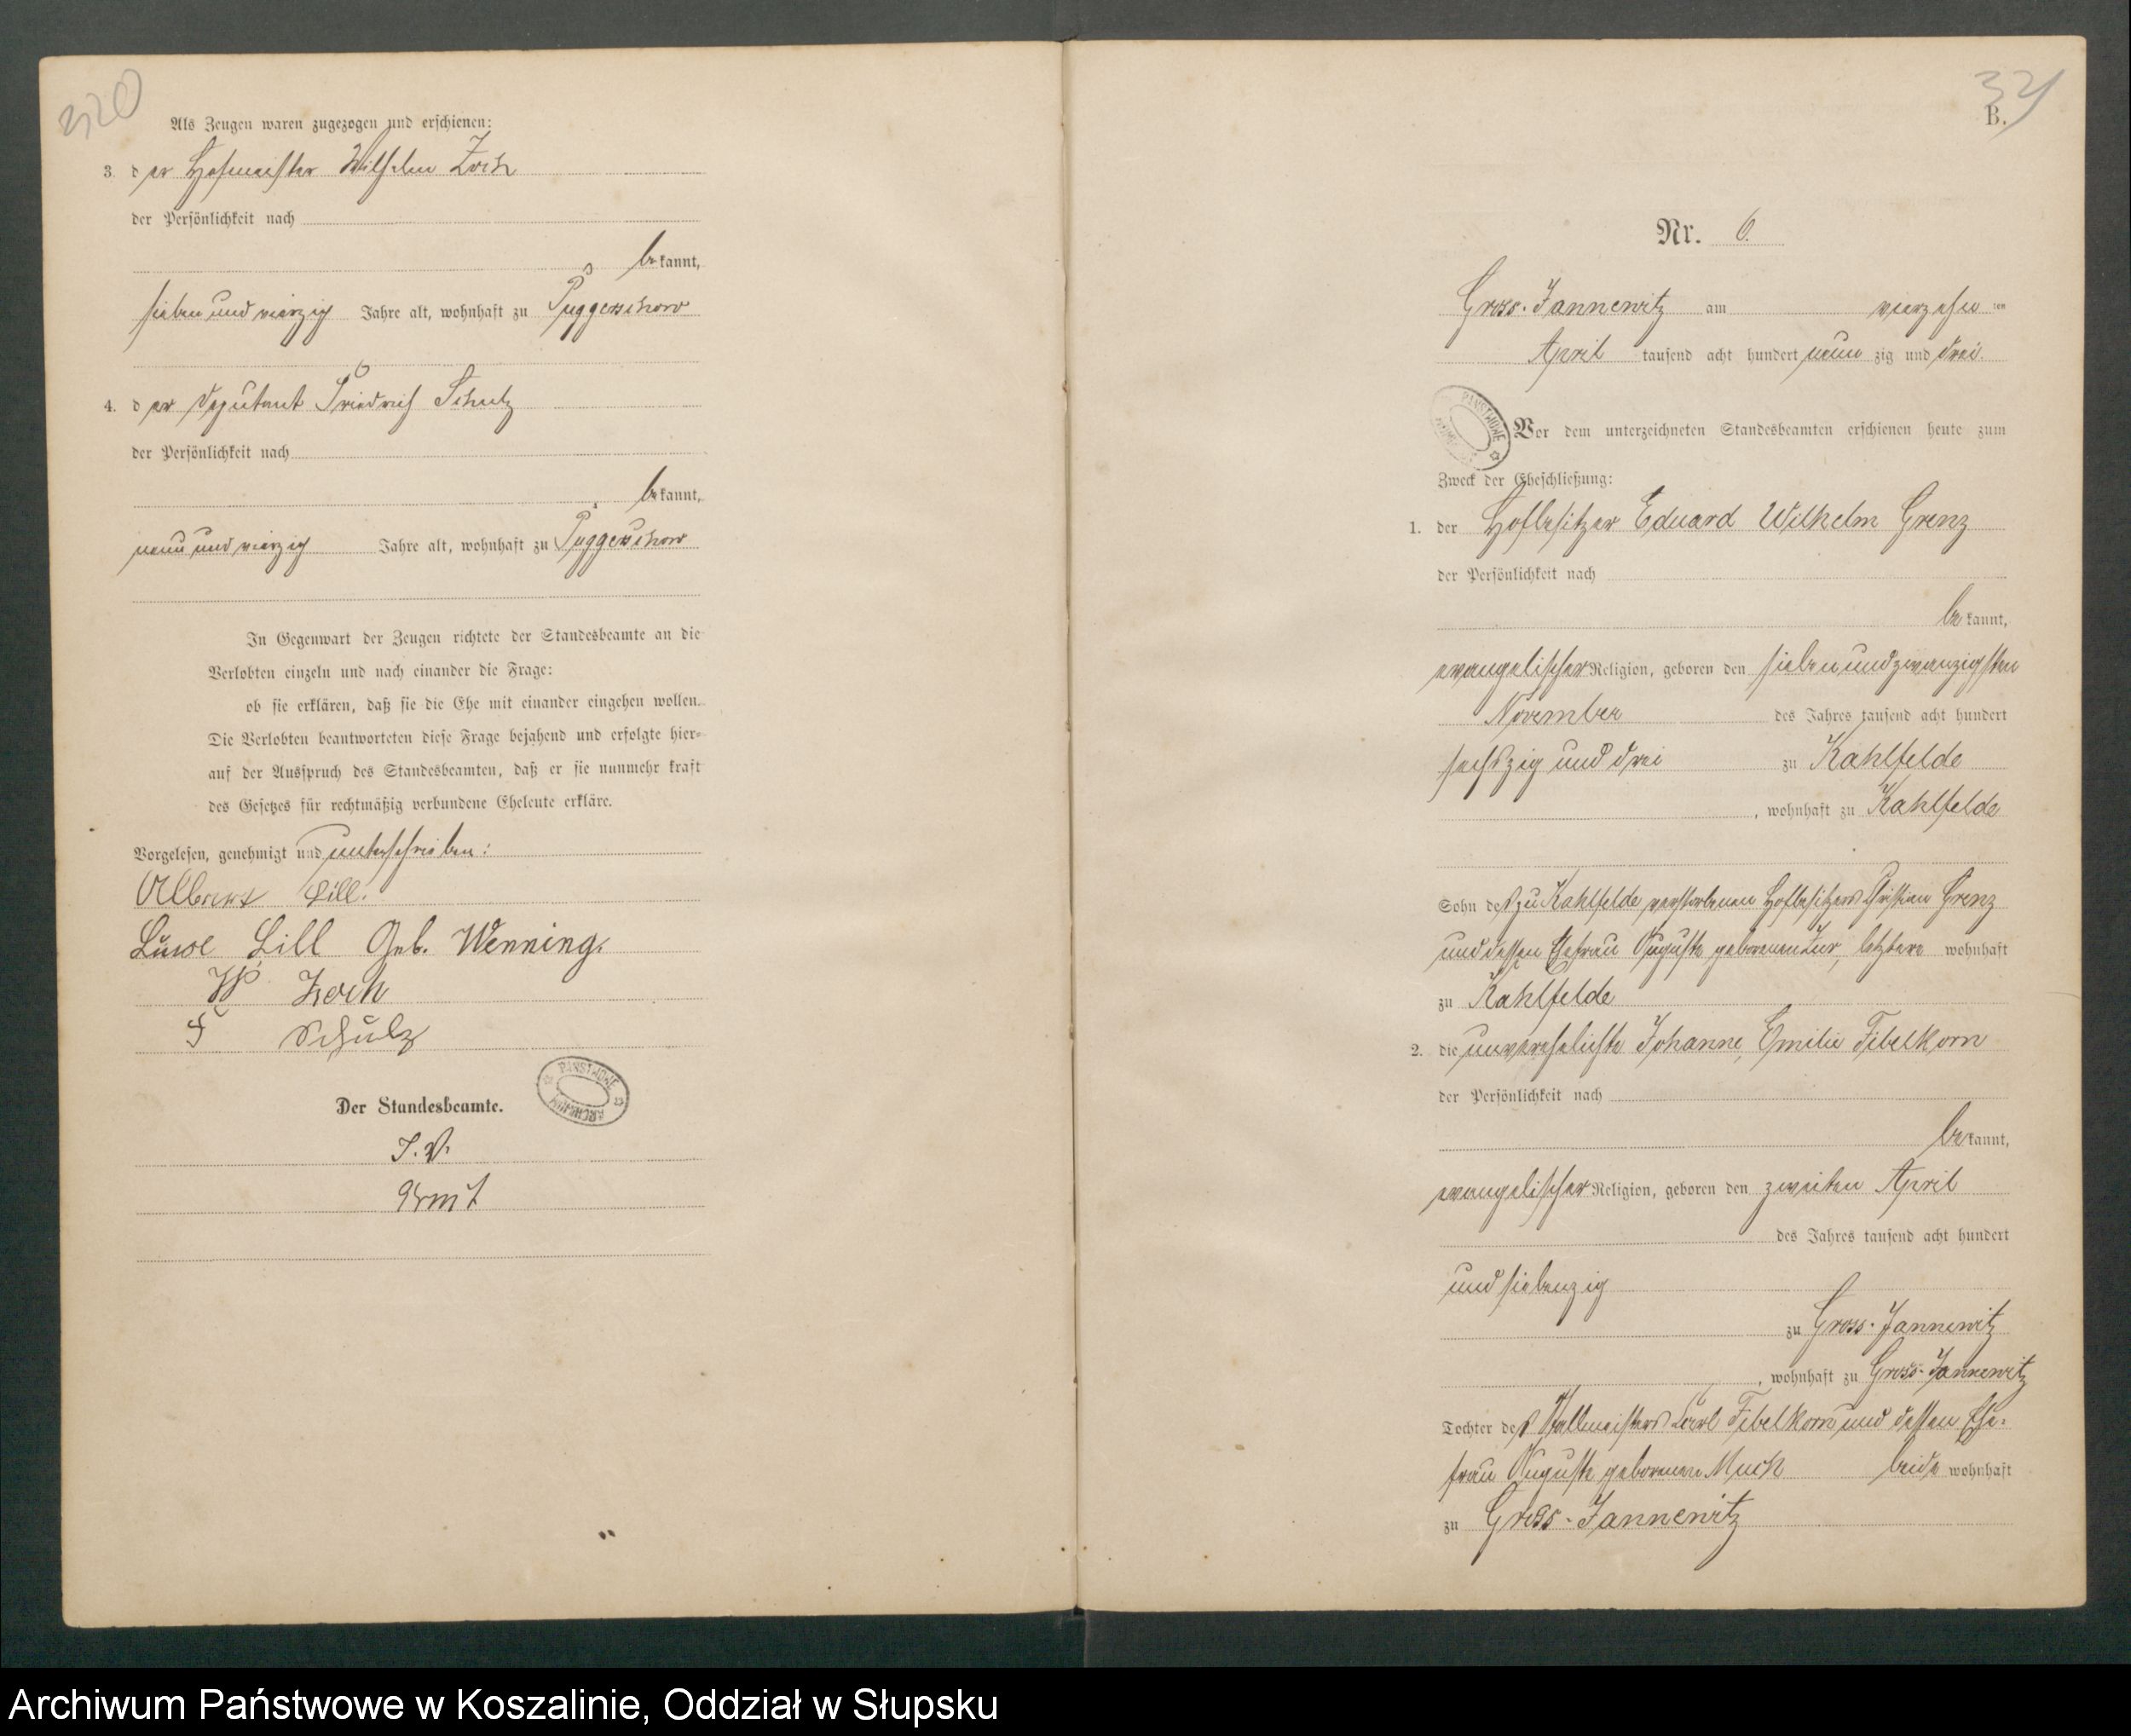 320
Als Zeugen waren zugezogen und erschienen:
3. der Hofmeister Wilhelm Zoch
der Persönlichkeit nach
bekannt,
sieben und vierzig Jahre alt, wohnhaft zu Puggerschow
4. der Deputant Friedrich Schulz
der Persönlichkeit nach
bekannt,
neun und vierzig Jahre alt, wohnhaft zu Puggerschow
In Gegenwart der Zeugen richtete der Standesbeamte an die
Verlobten einzeln und nach einander die Frage:
ob sie erklären, daß sie die Ehe mit einander eingehen wollen.
Die Verlobten beantworteten diese Frage bejahend und erfolgte hier-
auf der Ausspruch des Standesbeamten, daß er sie nunmehr kraft
des Gesetzes für rechtmäßig verbundene Eheleute erkläre.
Vorgelesen, genehmigt und unterschrieben:
Lill.
Lill Geb. Wenning.
W Zoch
F Schulz
PAŃSTWOWE ARCHIWUM
Der Standesbeamte.
I.V.
321
B.
Nr. 6.
Gross-Jannewitz am vierzehn ten
April tausend acht hundert neun zig und drei.
PAŃSTWOWE
Vor dem unterzeichneten Standesbeamten erschienen heute zum
Zweck der Eheschließung:
1. der Hofbesitzer Eduard Wilhelm Grenz
der Persönlichkeit nach
bekannt,
evangelischer Religion, geboren den siebenundzwanzigsten
November des Jahres tausend acht hundert
sechszig und drei zu Kahlfelde
, wohnhaft zu Kahlfelde
Sohn des zu Kahlfelde verstorbenen Hofbesitzers Christian Grenz
und dessen Ehefrau Auguste geborenen letztere wohnhaft
zu Kahlfelde
2. die unverehelichte Johanne, Emilie Fibelkorn
der Persönlichkeit nach
bekannt,
evangelischer Religion, geboren den zweiten April
des Jahres tausend acht hundert
und siebenzig
zu Gross-Jannewitz
, wohnhaft zu Gross-Jannewitz
Tochter des Carl Fibelkorn und dessen Ehe-
frau Auguste geborenen Much beide wohnhaft
zu Gross-Jannewitz
Archiwum Państwowe w Koszalinie, Oddział w Słupsku